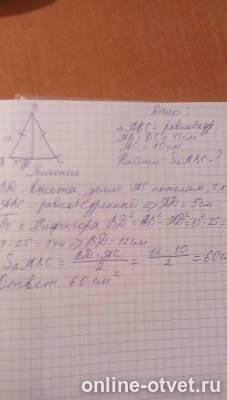 Дано:
△ABC - равнобедр
AB=BC=13см
AC=10см
Найти: S△ABC-?
B
C
D
Решение
BD - высота делит AC пополам, т.к
ABC - равнобедренный ⇒ AD=5см
По т. Пифагора BD²=AB²-AD²=13²-25=
9-25=144 ⇒ BD=12см
S△ABC = BD·AC / 2 = 12·10 / 2 = 60см
Ответ 60см²
online-otvet.ru